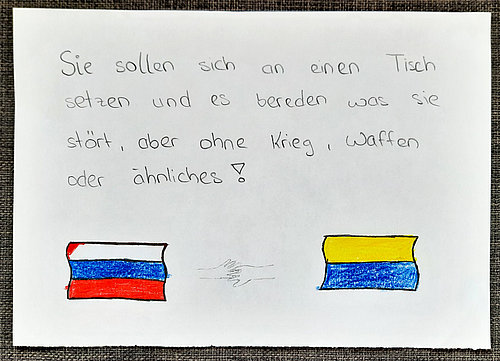 Sie sollen sich an einen Tisch
setzen und es bereden was sie
stört, aber ohne Krieg, Waffen
oder ähnliches!